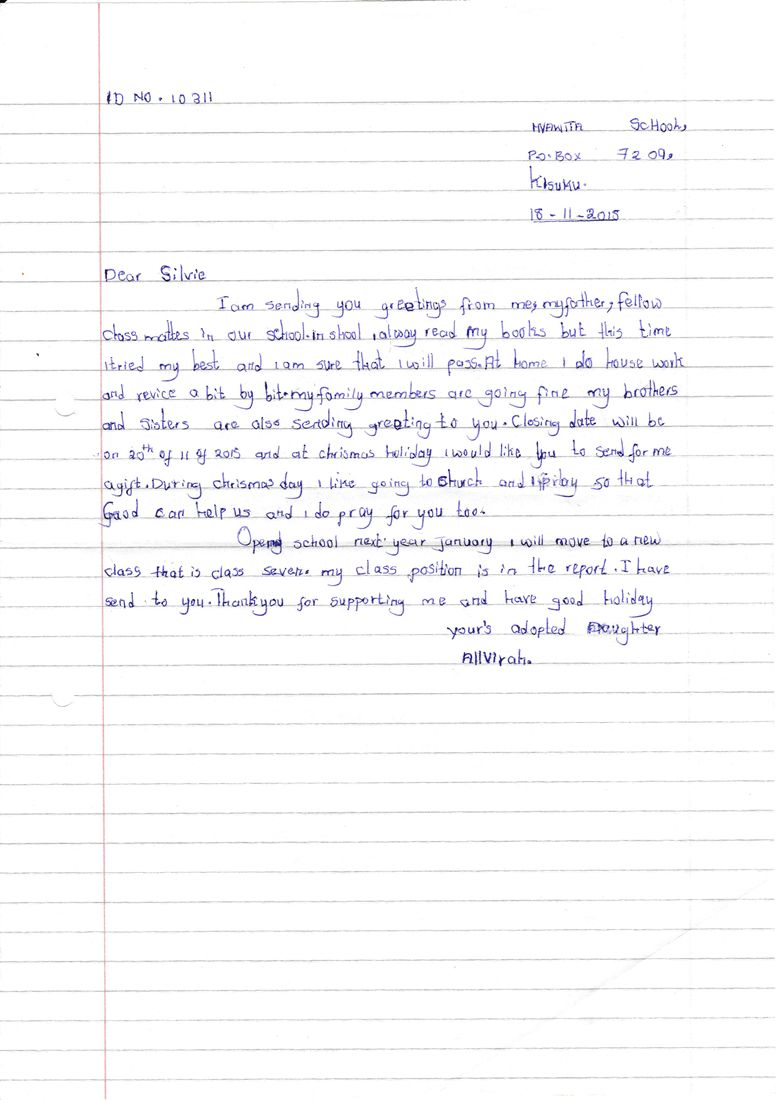 ID NO. 10311
SCHOOL,
P.O. BOX 7209,
KISUMU.
18-11-2015
Dear Silvie
I am sending you greetings from me, my father, fellow
class mattes in our school. in shool i alway read my books but this time
i tried my best and i am sure that i will pass. At home i do house work
and revice a bit by bit. my family members are going fine my brothers
and sisters are also sending greeting to you. Closing date will be
on 20th of 11 of 2015 and at chrismas holiday i would like you to send for me
a gift. During chrismas day i like going to church and pray so that
Good can help us and i do pray for you too.
Openg school next year january i will move to a new
class that is class seven. my class position is in the report. I have
send to you. Thank you for supporting me and have good holiday
your's adopted Daughter
Allvirah.